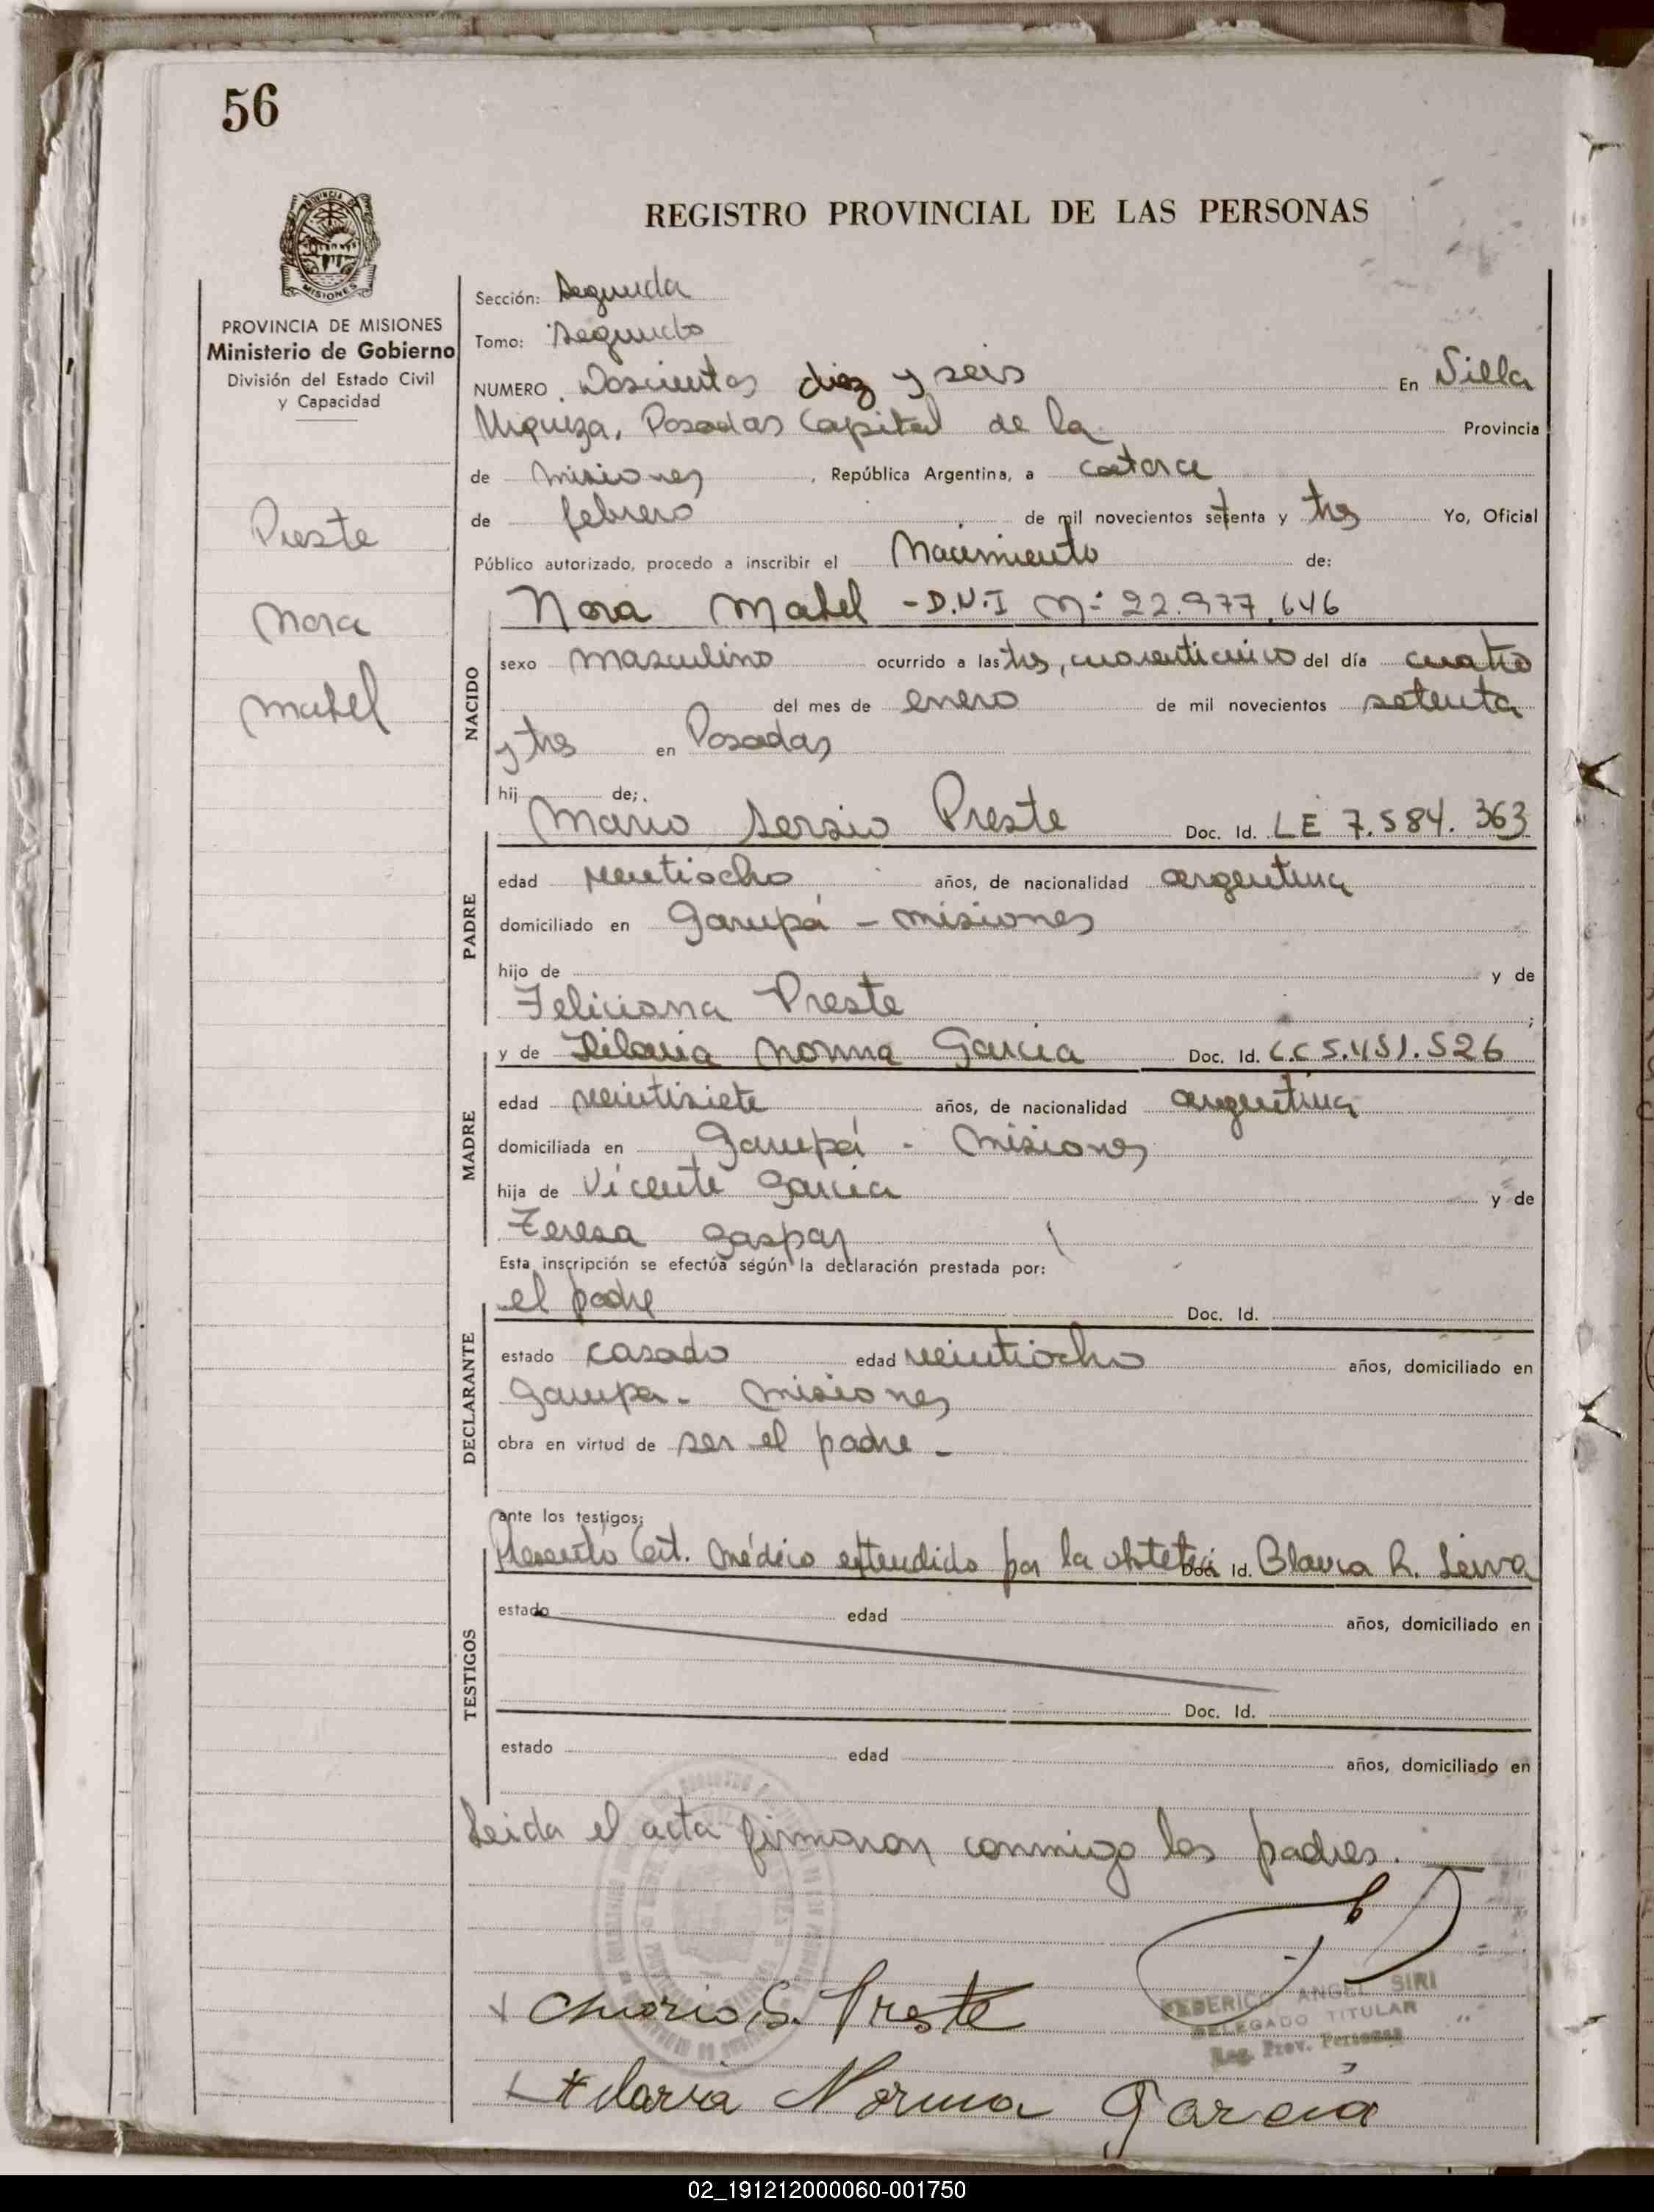 56
REGISTRO PROVINCIAL DE LAS PERSONAS
MISIONES
PROVINCIA DE MISIONES
Ministerio de Gobierno
División del Estado Civil
y Capacidad
Preste
Nora
Mabel
Sección: Segunda
Tomo: Segundo
NUMERO Doscientos diez y seis En Villa
Urquiza, Posadas Capital de la Provincia
de Misiones, República Argentina, a catorce
de febrero de mil novecientos setenta y tres Yo, Oficial
Público autorizado, procedo a inscribir el Nacimiento de:
NACIDO
Nora Mabel - D.N.I Nº 22.977.646
sexo masculino ocurrido a las tres, cuarenticinco del día cuatro
del mes de enero de mil novecientos setenta
y tres en Posadas
hij de:
PADRE
Mario Sersio Preste Doc. Id. LE 7.584.363
edad veintiocho años, de nacionalidad argentina
domiciliado en Garupá - Misiones
hijo de y de
Feliciana Preste ;
MADRE
y de Hilaria Norma Garcia Doc. Id. C.C 5.451.526
edad veintisiete años, de nacionalidad argentina
domiciliada en Garupá - Misiones
hija de Vicente Garcia y de
Teresa Gaspar
Esta inscripción se efectúa según la declaración prestada por:
DECLARANTE
el padre Doc. Id.
estado casado edad veintiocho años, domiciliado en
Garupa - Misiones
obra en virtud de ser el padre -
ante los testigos:
TESTIGOS
Presentó Cert. Médico extendido por la obstetri Doc. Id. Blanca R. Leiva
estado edad años, domiciliado en
Doc. Id.
estado edad años, domiciliado en
Leida el acta firmaron conmigo los padres.
Mario S. Preste
FEDERICO ANGEL SIRI
DELEGADO TITULAR
Reg. Prov. Personas
Hilaria Norma Garcia
02_191212000060-001750